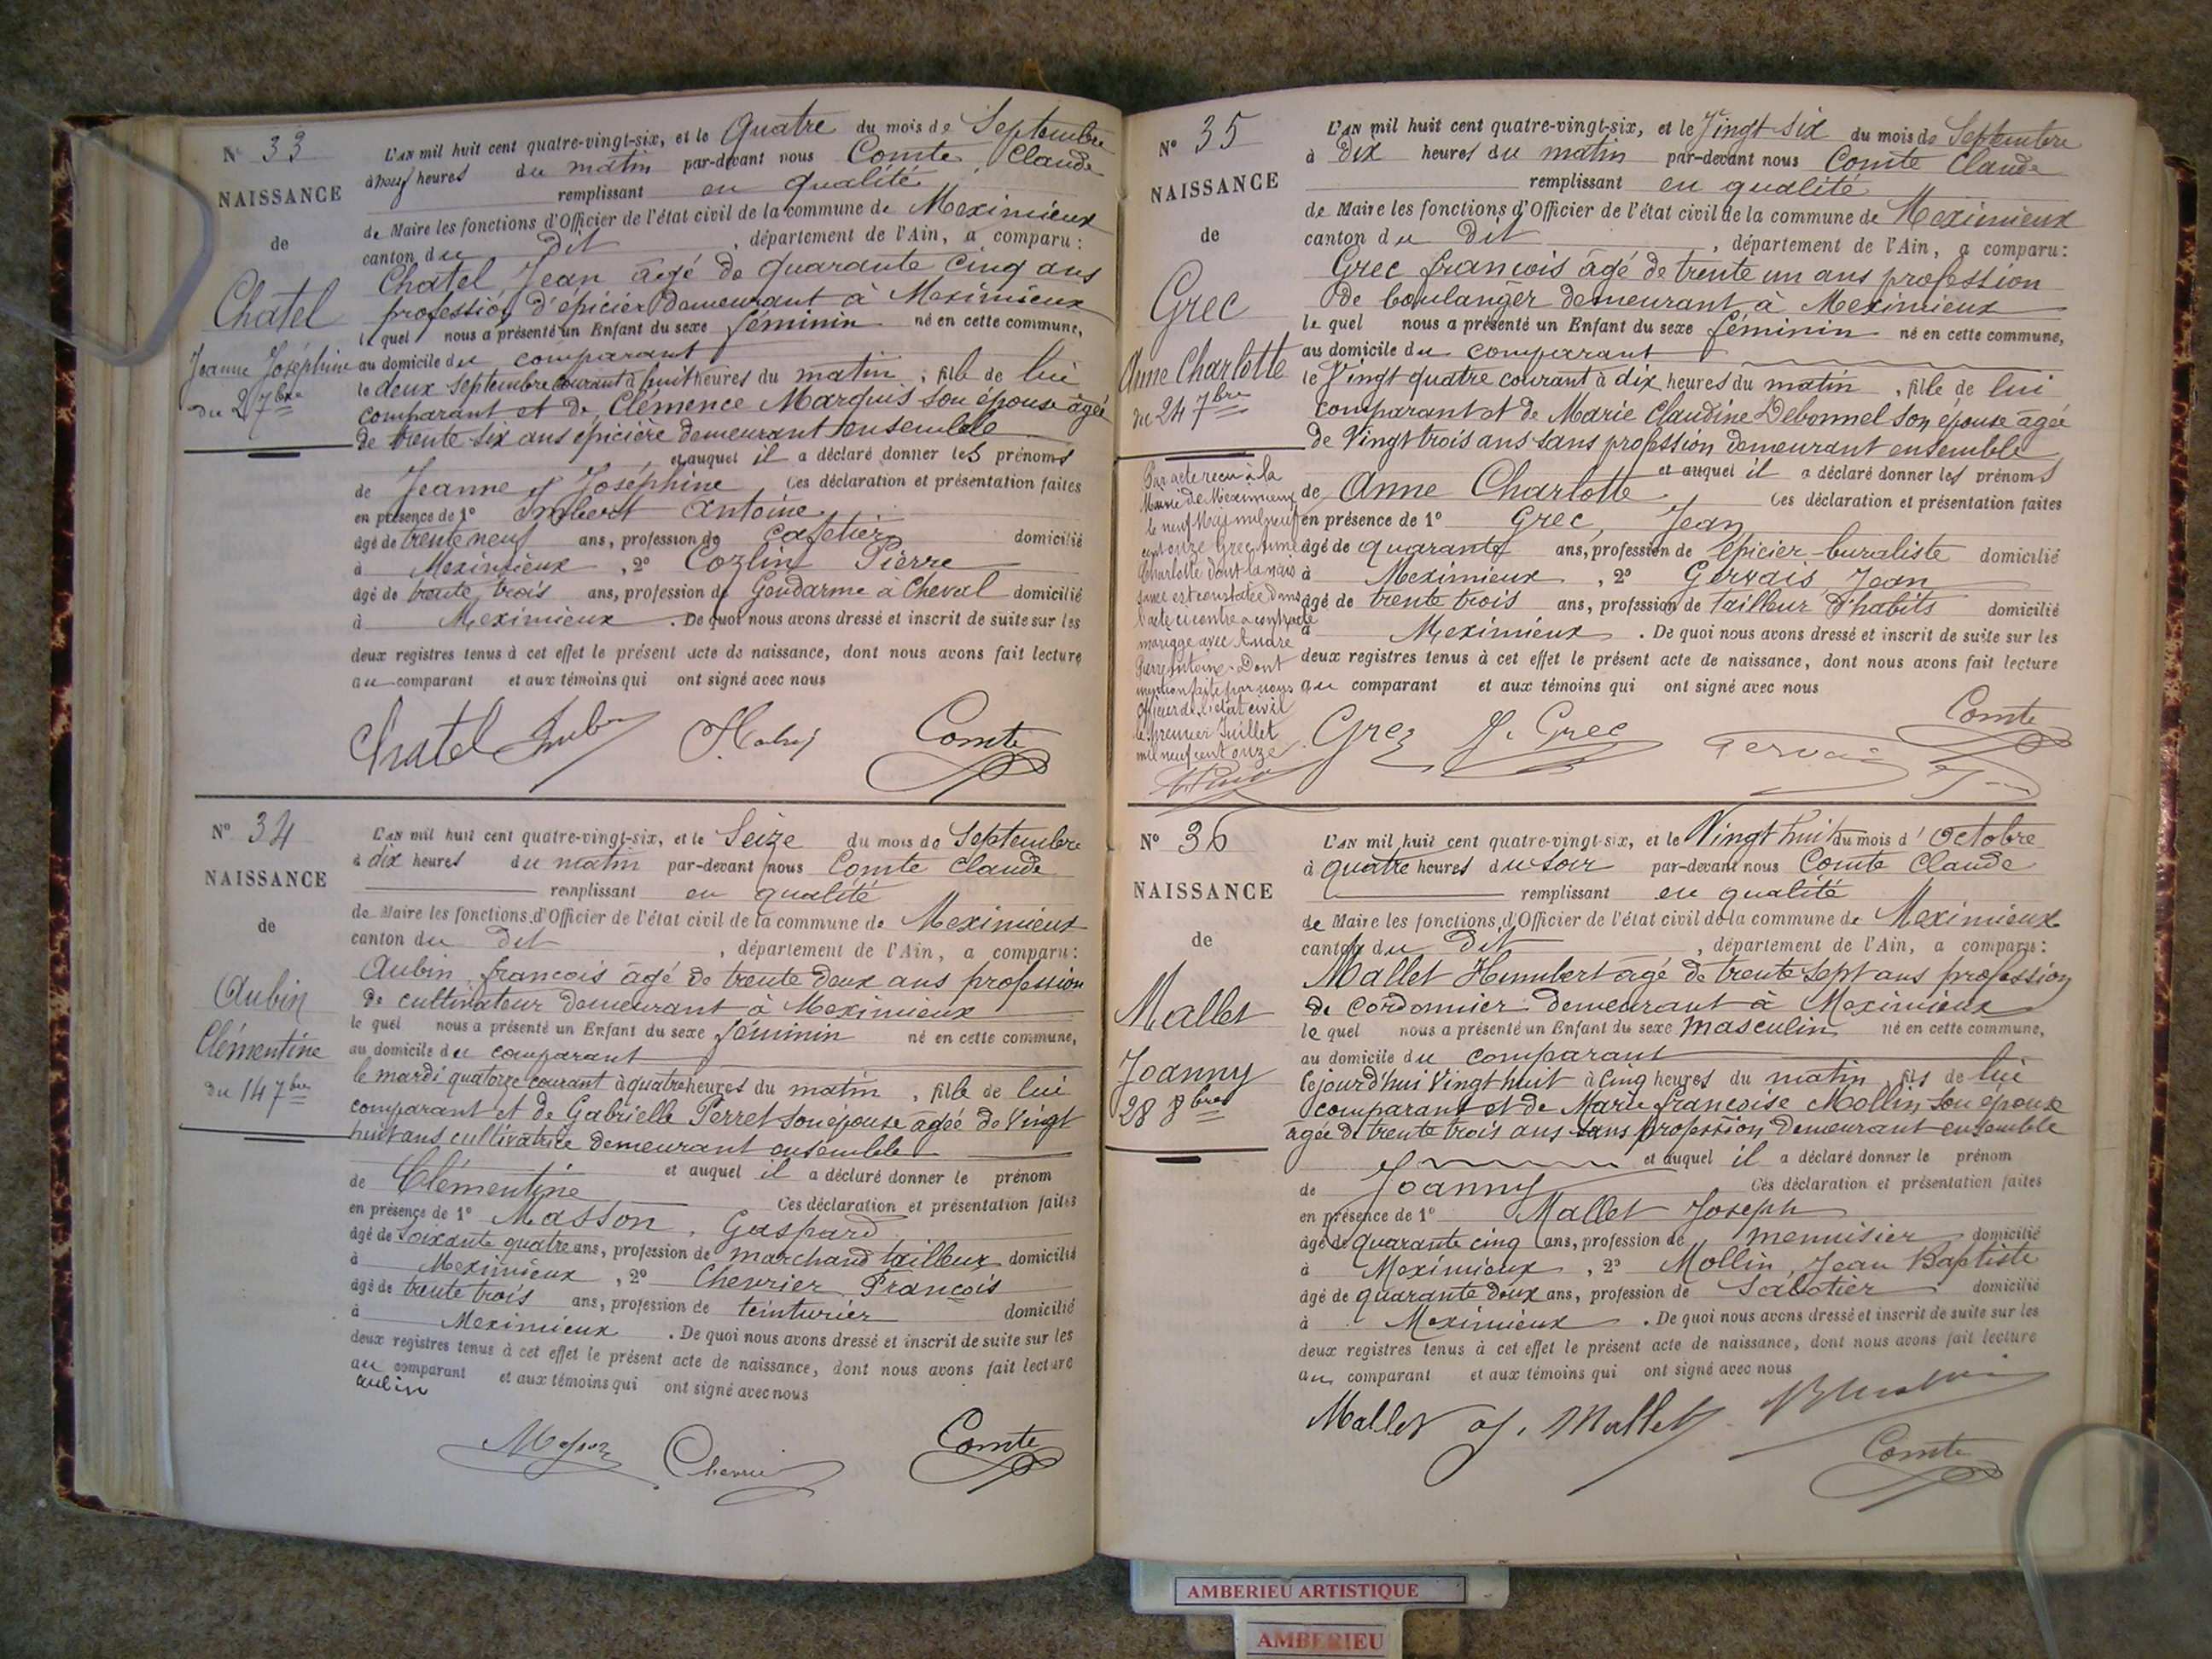 N° 33
NAISSANCE
de
Chatel
Jeanne Joséphine
du 2 7bre
L'AN mil huit cent quatre-vingt-six, et le Quatre du mois de Septembre
à neuf heures du matin par-devant nous Comte Claude
remplissant en qualité
de Maire les fonctions d'Officier de l'état civil de la commune de Meximieux
canton du dit , département de l'Ain, a comparu :
Chatel Jean âgé de quarante cinq ans
profession d'épicier demeurant à Meximieux
le quel nous a présenté un Enfant du sexe féminin né en cette commune,
au domicile du comparant
le deux septembre courant à huit heures du matin , fille de lui
comparant et de Clémence Marquis son épouse âgée
de trente six ans épicière demeurant ensemble
et auquel il a déclaré donner les prénoms
de Jeanne Joséphine Ces déclaration et présentation faites
en présence de 1° Imbert Antoine
âgé de trente neuf ans, profession de cafetier domicilié
à Meximieux , 2° Cozlin Pierre
âgé de trente trois ans, profession de Gendarme à Cheval domicilié
à Meximieux . De quoi nous avons dressé et inscrit de suite sur les
deux registres tenus à cet effet le présent acte de naissance, dont nous avons fait lecture
au comparant et aux témoins qui ont signé avec nous
Chatel Comte
N° 34
NAISSANCE
de
Aubin
Clémentine
du 14 7bre
L'AN mil huit cent quatre-vingt-six, et le Seize du mois de Septembre
à dix heures du matin par-devant nous Comte Claude
remplissant en qualité
de Maire les fonctions d'Officier de l'état civil de la commune de Meximieux
canton du dit , département de l'Ain, a comparu :
Aubin francois âgé de trente deux ans profession
de cultivateur demeurant à Meximieux
le quel nous a présenté un Enfant du sexe féminin né en cette commune,
au domicile du comparant
le mardi quatorze courant à quatre heures du matin , fille de lui
comparant et de Gabrielle Perret son épouse âgée de Vingt
huit ans cultivatrice demeurant ensemble
et auquel il a déclaré donner le prénom
de Clémentine Ces déclaration et présentation faites
en présence de 1° Masson Gaspard
âgé de Soixante quatre ans, profession de marchand tailleur domicilié
à Meximieux , 2° Chevrier François
âgé de trente trois ans, profession de teinturier domicilié
à Meximieux . De quoi nous avons dressé et inscrit de suite sur les
deux registres tenus à cet effet le présent acte de naissance, dont nous avons fait lecture
au comparant et aux témoins qui ont signé avec nous
aubin
Masson Chevrier Comte
N° 35
NAISSANCE
de
Grec
Anne Charlotte
du 24 7bre
Par acte reçu à la
Mairie de Meximieux
le neuf Mai mil neuf
cent onze Grec Anne
Charlotte dont la nais
sance est constatée dans
l'acte ci contre a contracté
mariage avec André
Pierre Antoine. Dont
mention faite par nous
Officier de l'état civil
le premier Juillet
mil neuf cent onze
L'AN mil huit cent quatre-vingt-six, et le Vingt Six du mois de Septembre
à Dix heures du matin par-devant nous Comte Claude
remplissant en qualité
de Maire les fonctions d'Officier de l'état civil de la commune de Meximieux
canton du dit , département de l'Ain, a comparu :
Grec francois âgé de trente un ans profession
de boulanger demeurant à Meximieux
le quel nous a présenté un Enfant du sexe féminin né en cette commune,
au domicile du comparant
le Vingt quatre courant à dix heures du matin , fille de lui
comparant et de Marie Claudine Debonnel son épouse âgée
de Vingt trois ans sans profession demeurant ensemble
et auquel il a déclaré donner les prénoms
de Anne Charlotte Ces déclaration et présentation faites
en présence de 1° Grec Jean
âgé de quarante ans, profession de épicier-buraliste domicilié
à Meximieux , 2° Gervais Jean
âgé de trente trois ans, profession de tailleur d'habits domicilié
à Meximieux . De quoi nous avons dressé et inscrit de suite sur les
deux registres tenus à cet effet le présent acte de naissance, dont nous avons fait lecture
au comparant et aux témoins qui ont signé avec nous
Grec J. Grec Gervais Comte
N° 36
NAISSANCE
de
Mallet
Joanny
28 8bre
L'AN mil huit cent quatre-vingt-six, et le Vingt huit du mois d' Octobre
à quatre heures du soir par-devant nous Comte Claude
remplissant en qualité
de Maire les fonctions d'Officier de l'état civil de la commune de Meximieux
canton du dit , département de l'Ain, a comparu :
Mallet Humbert âgé de trente sept ans profession
de cordonnier demeurant à Meximieux
le quel nous a présenté un Enfant du sexe masculin né en cette commune,
au domicile du comparant
cejourd'hui Vingt huit à cinq heures du matin , fils de lui
comparant et de Marie francoise Mollin son épouse
âgée de trente trois ans sans profession demeurant ensemble
et auquel il a déclaré donner le prénom
de Joanny Ces déclaration et présentation faites
en présence de 1° Mallet Joseph
âgé de quarante cinq ans, profession de menuisier domicilié
à Meximieux , 2° Mollin Jean Baptiste
âgé de quarante deux ans, profession de Sabotier domicilié
à Meximieux . De quoi nous avons dressé et inscrit de suite sur les
deux registres tenus à cet effet le présent acte de naissance, dont nous avons fait lecture
au comparant et aux témoins qui ont signé avec nous
Mallet J. Mallet
Comte
AMBERIEU ARTISTIQUE
AMBERIEU